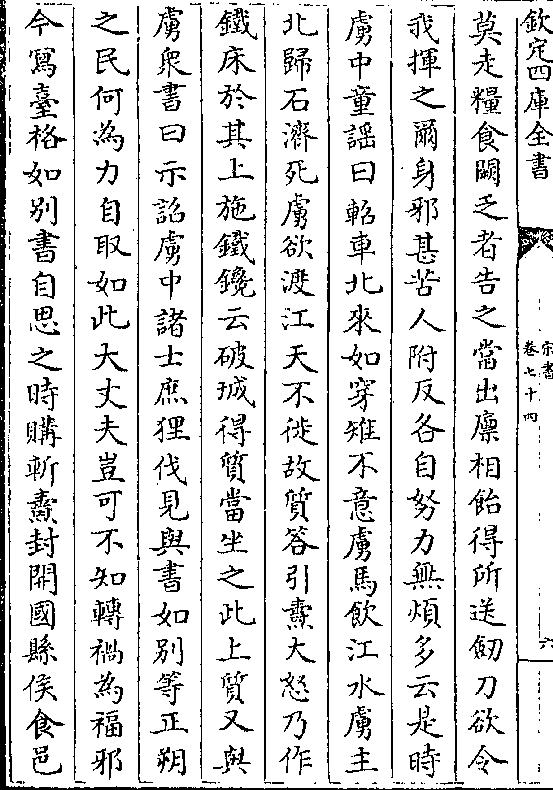 欽定四庫全書
宋書
卷七十四
六
莫走糧食闕乏者告之當出廩相飴得所送劒刀欲令
我揮之爾身邪甚苦人附反各自努力無煩多云是時
虜中童謡曰軺車北來如穿雉不意虜馬飲江水虜主
北歸石濟死虜欲渡江天不徙故質答引燾大怒乃作
鐵床於其上施鐵鑱云破城得質當坐之此上質又與
虜衆書曰示詔虜中諸士庶狸伐見與書如别等正朔
之民何為力自取如此大丈夫豈可不知轉禍為福邪
今寫臺格如别書自思之時購斬燾封開國縣侯食邑